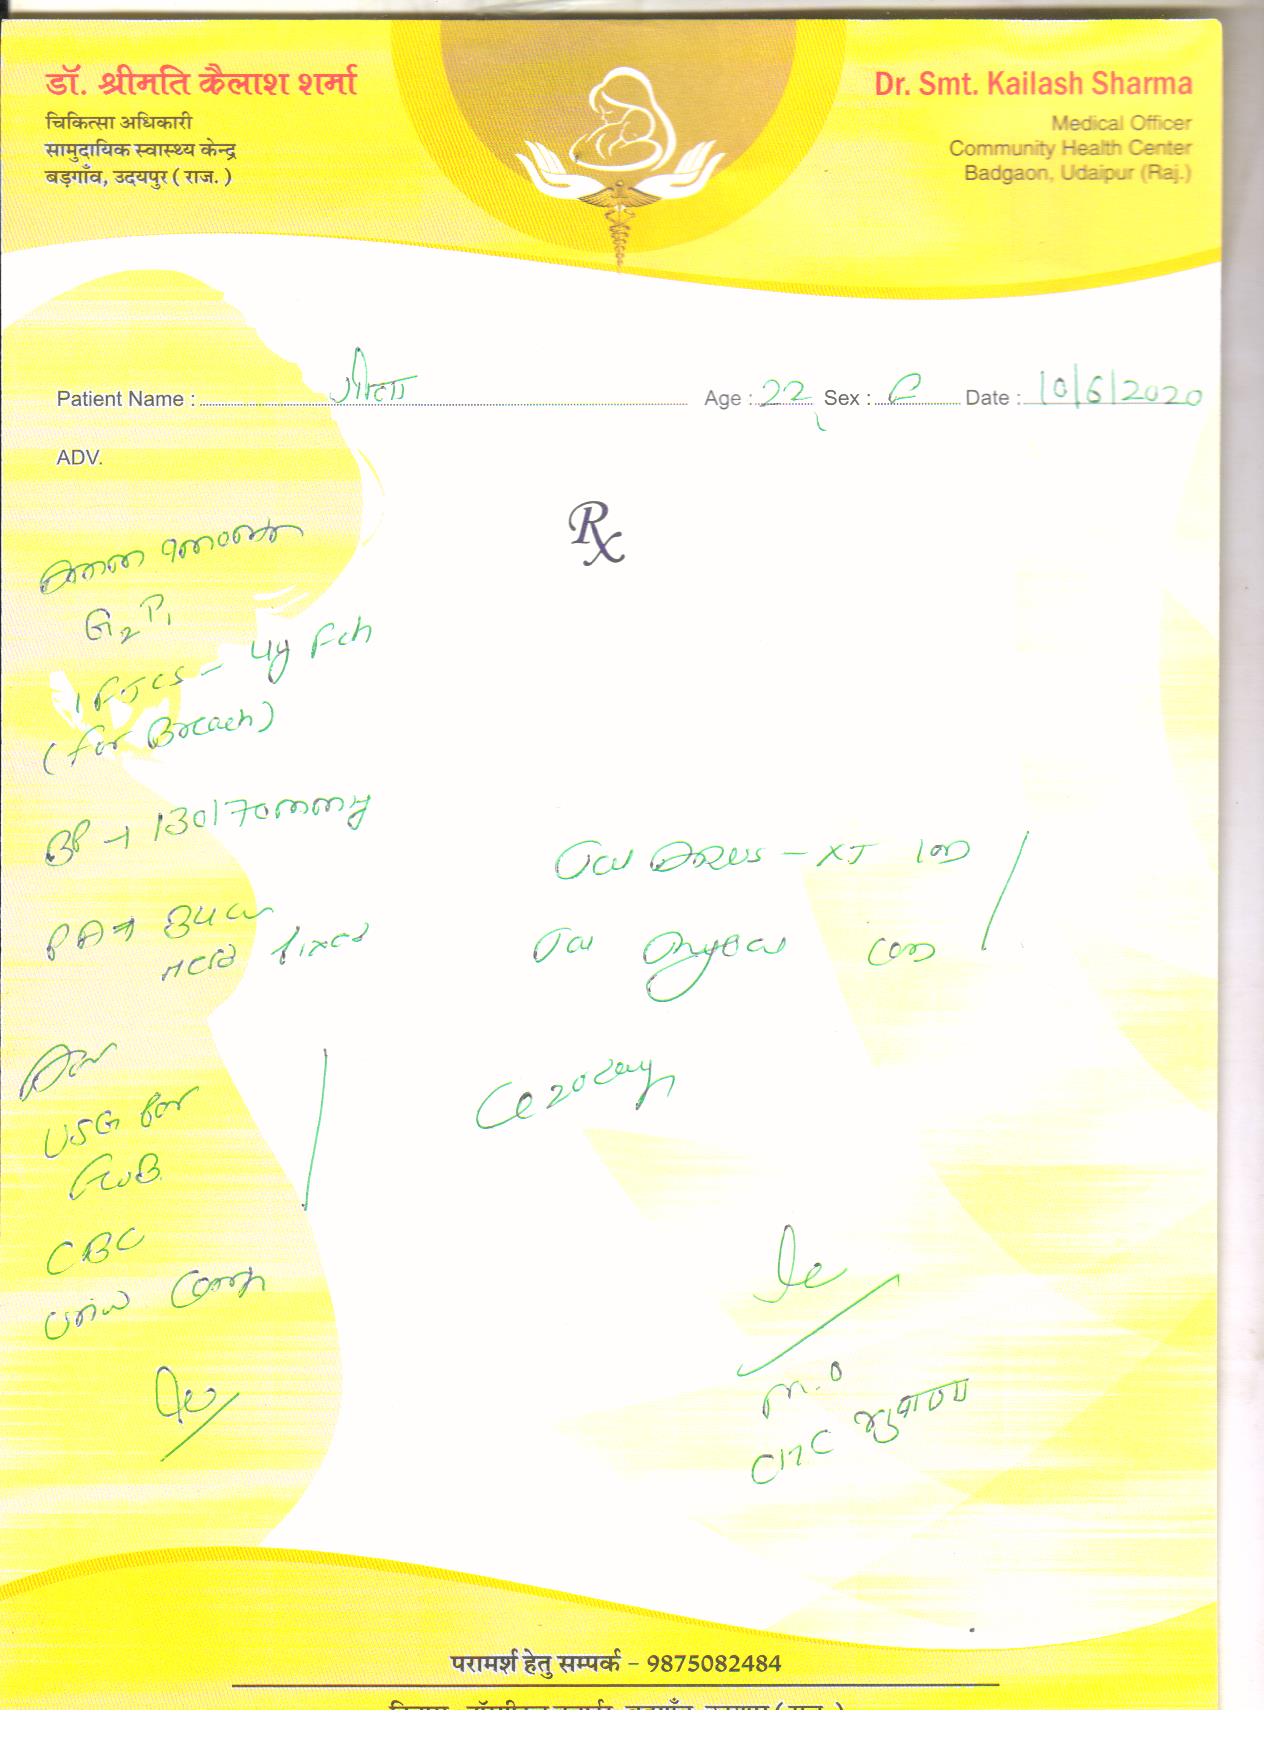 डॉ. श्रीमति कैलाश शर्मा
चिकित्सा अधिकारी
सामुदायिक स्वास्थ्य केन्द्र
बड़गाँव, उदयपुर ( राज. )
Dr. Smt. Kailash Sharma
Medical Officer
Community Health Center
Badgaon, Udaipur (Raj.)
Patient Name : गीता Age : 22 Sex : F Date : 10/6/2020
ADV.
Rx
9month
G2 P1
1 FTCS - 4y Fch
(for Breach)
BP → 130/70mmHg
PA → 34w
Head fixed
Adv
USG for
FWB
CBC
Urine Comp
Tab - XT 1OD
Tab OD
20 day
M.O
CHC
परामर्श हेतु सम्पर्क - 9875082484